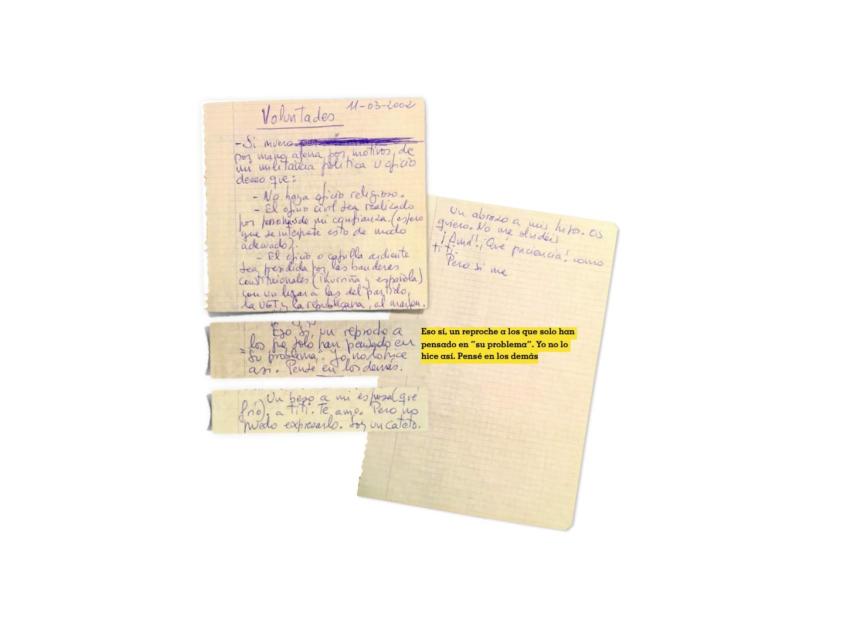 Voluntades 11-03-2002
- Si muero
por mano ajena por motivos de
mi militancia política u oficio
deseo que:
- No haya oficio religioso.
- El oficio civil sea realizado
por personas de mi confianza. (espero
que se interprete esto de modo
adecuado).
- El oficio o capilla ardiente
sea presidida por las banderas
constitucionales (ikurriña y española)
con un lugar a las del partido,
la UGT y la republicana, al margen.
Eso sí, un reproche a
los que solo han pensado en
"su problema". Yo no lo hice
así. Pensé en los demás.
Un beso a mi esposa (qué
frío), a Titi. Te amo. Pero no
puedo expresarlo. Soy un cateto.
Un abrazo a mis hijos. Os
quiero. No me olvidéis
¡Amá! ¡Qué paciencia! como
Titi.
Pero si me
Eso sí, un reproche a los que solo han
pensado en "su problema". Yo no lo
hice así. Pensé en los demás